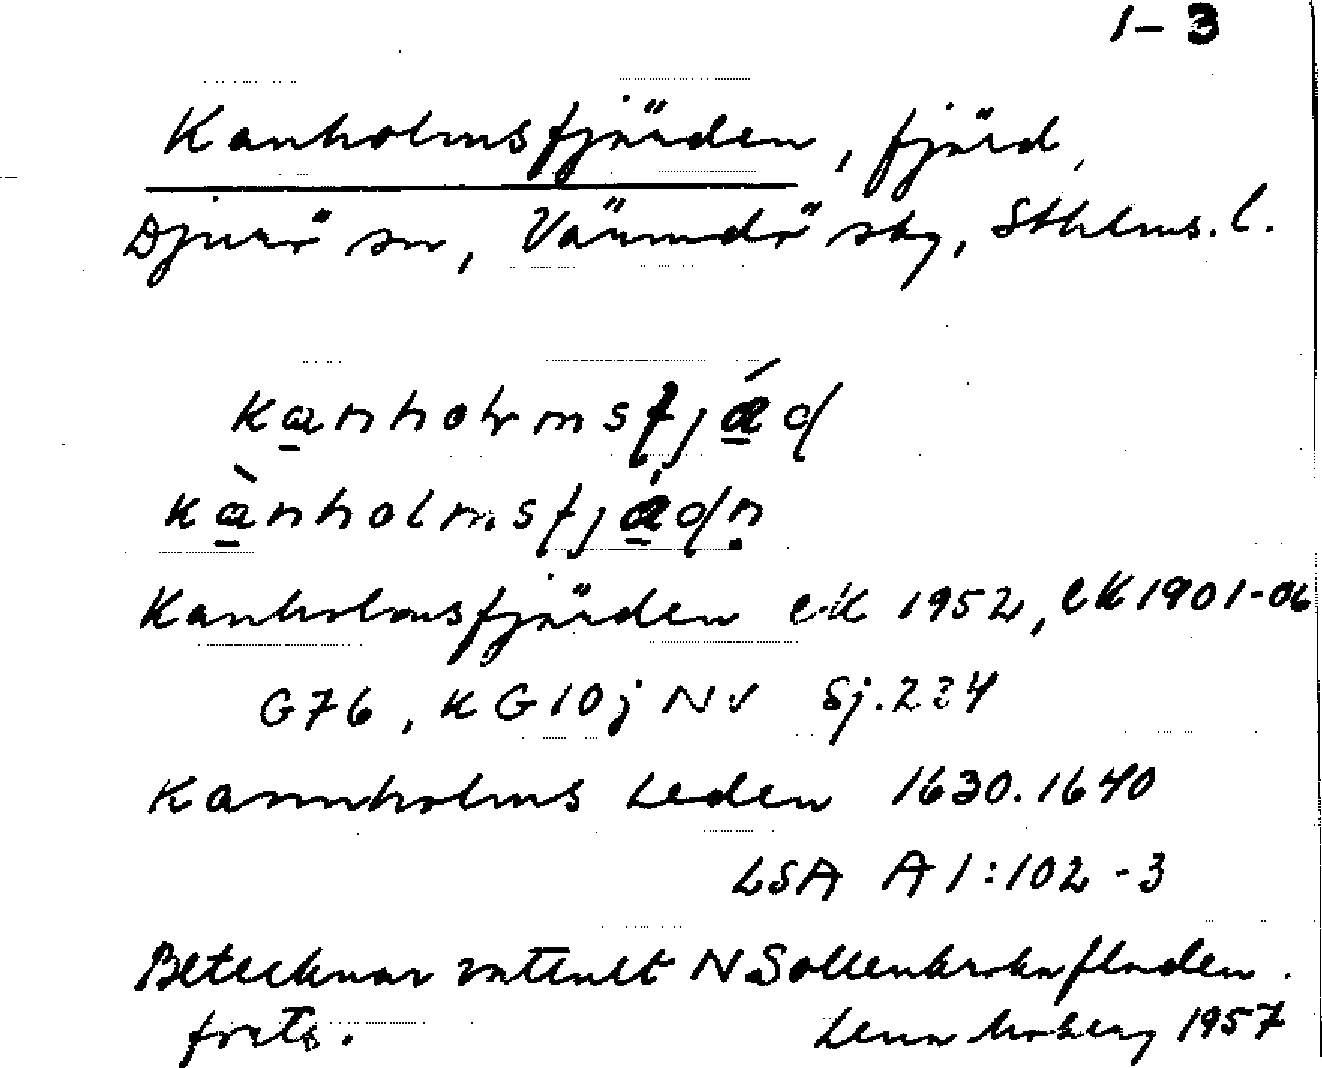 1-3
Kanholmsfjärden, fjärd,
Djurö sn, Värmdö skg, Sthlms. l.
kanholmsfjǽd
kànholmsfjǽdṇ
Kanholmsfjärden EK 1952, EK 1901-06
G76, KG10j NV Sj. 224
Kannholms Leden 1630. 1640
LSA A1:102-3
Betecknar vattnet N Sollenkrokafladen.
forts. Lena Moberg 1957